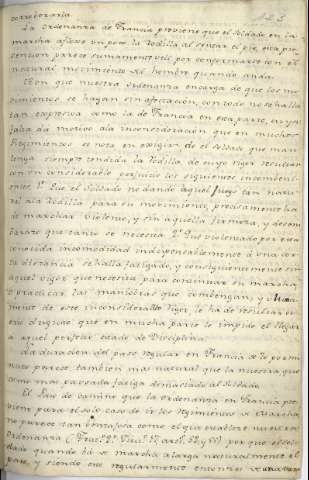 corroboraria.
La Ordenanza de Francia previene que el Soldado en la
marcha afloxe un poco la Rodilla al sentar el pie, esta pre-
vencion parece sumamente util por conformarse con el
natural movimiento del hombre quando anda.
Aun que nuestra Ordenanza encarga de que los mo-
vimientos se hagan sin afectacion, con todo no se halla
tan expresiva como la de Francia en esta parte, cuya
falta da motivo a la inconsideracion que en muchos
Regimientos se nota en exigir de el Soldado que man-
tenga siempre tendida la Rodilla, de cuyo rigor resultan
con un considerable perjuicio los siguientes inconbeni-
entes 1º Que el Soldado no dando aquel juego tan natu-
ral a la Rodilla para su movimiento, precisamente ha
de marchar violento, y sin aquella firmeza, y desem-
barazo que tanto se necesita 2º Que violentado por esta
conocida incomodidad indispensablemente á una cor-
ta distancia se halla fatigado, y consiguientemente sin
aquel vigor que necesita para continuar su marcha,
ó practicar las maniobras que combengan, y
de este inconsiderable Rigor le ha de resultar un
que en mucha parte le impide el llegar
a aquel perfecto estado de Disciplina.
La duracion del paso regular en Francia de
minuto parece tambien mas natural que la nuestra que
como mas pausada fatiga demasiado al Soldado.
El Paso de camino que la Ordenanza en Francia pre-
viene para el solo caso de ir los Regimientos de Marcha,
no parece tan ventajoso como el que establece nuestra
Ordenanza por que el Sol-
dado quando ha de marchar alarga naturalmente el
paso, y siendo este regularmente